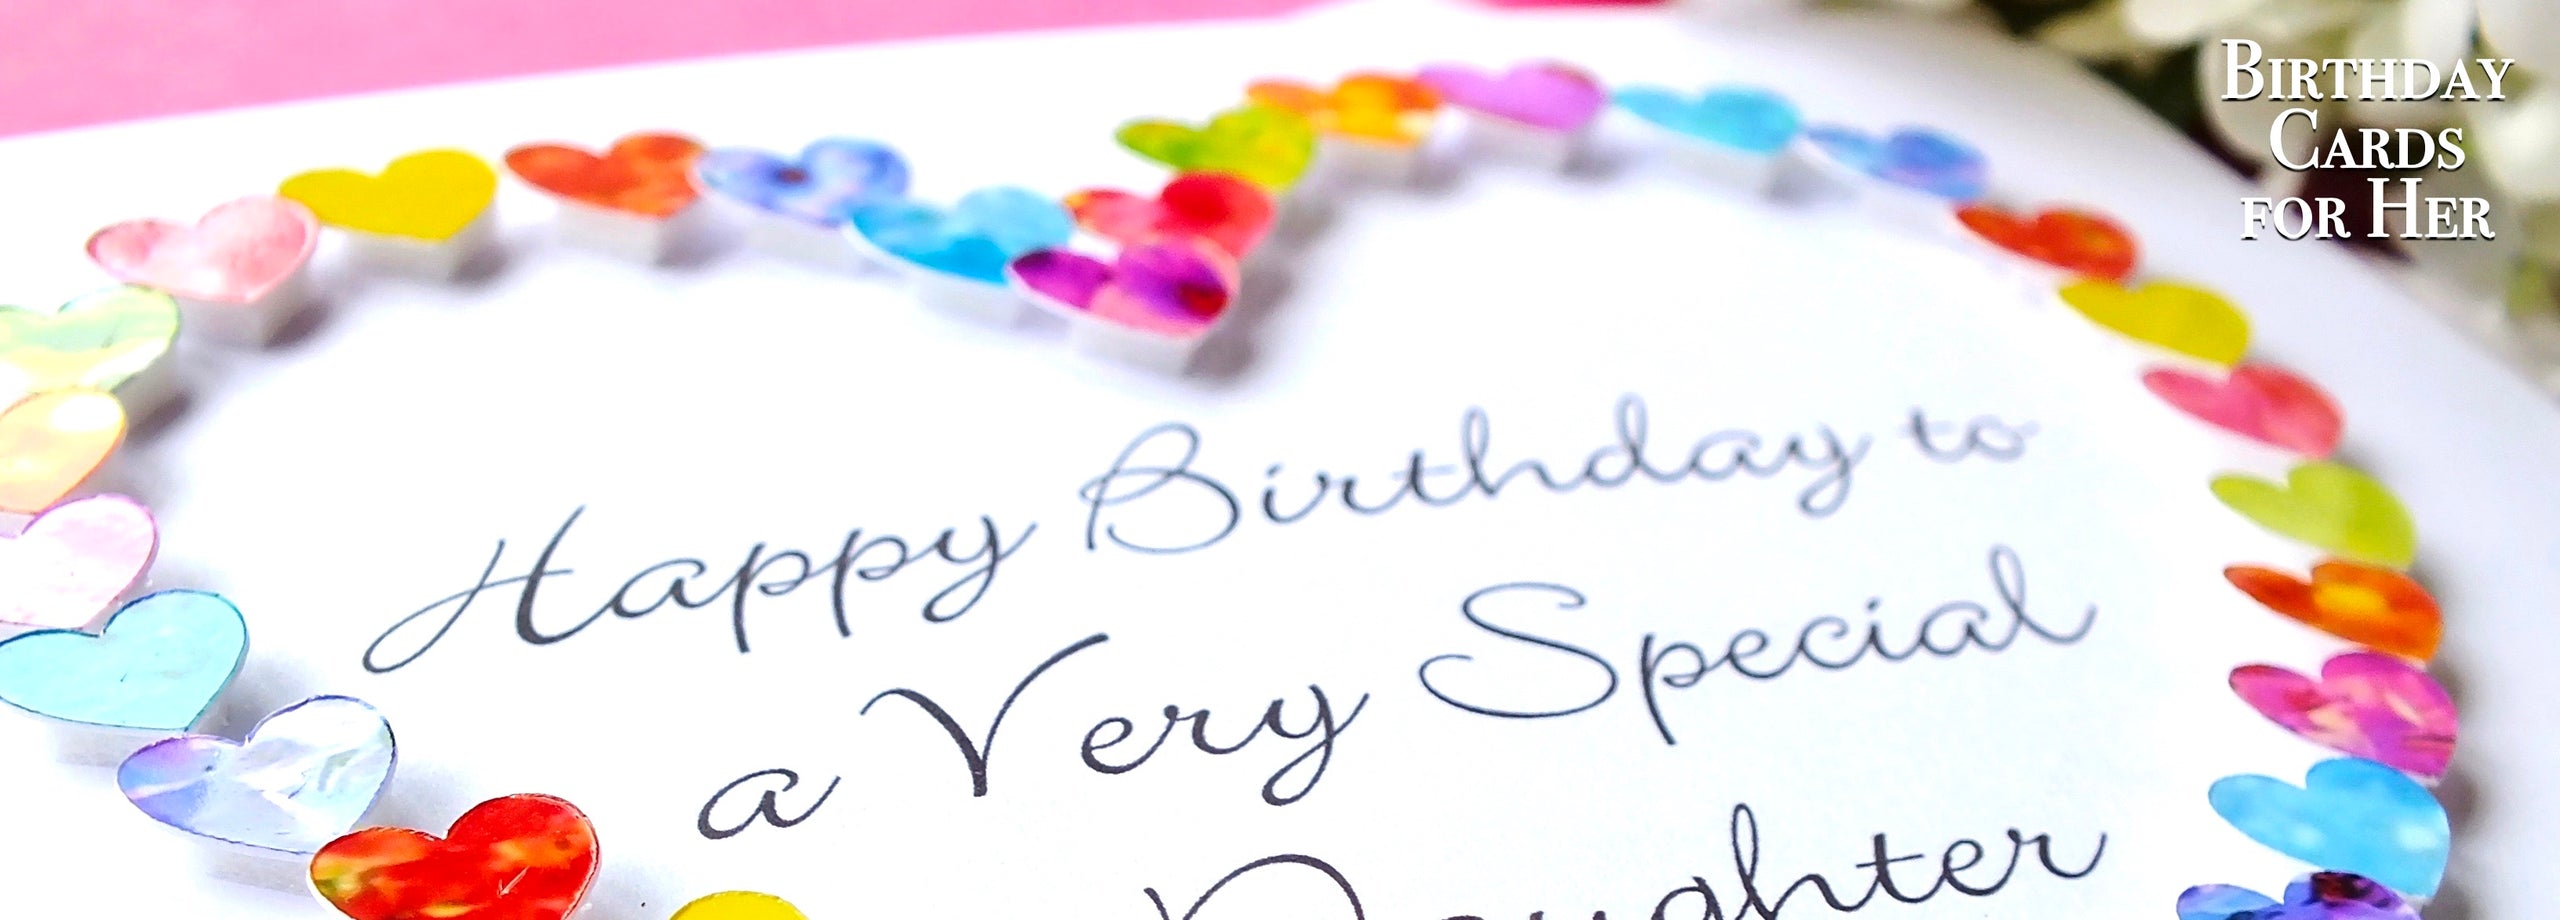 Birthday
Cards
for Her
Happy Birthday to
a Very Special
Daughter